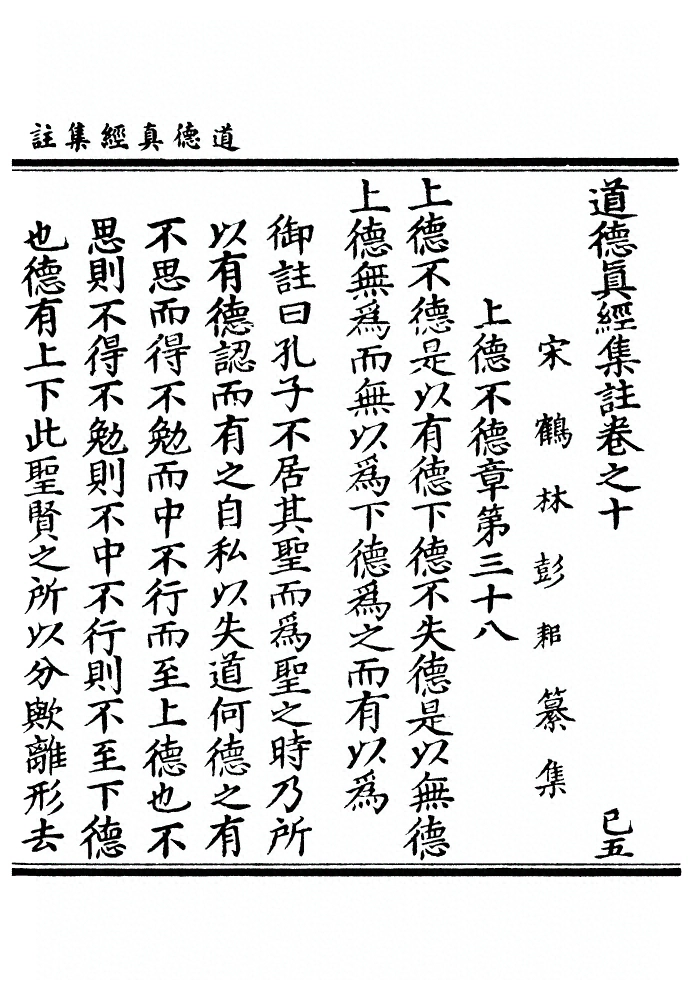 道德真經集註
道德眞經集註卷之十
已五
宋鶴林彭耜纂集
上德不德章第三十八
上德不德是以有德下德不失德是以無德
上德無爲而無以爲下德爲之而有以爲
御註曰孔子不居其聖而爲聖之時乃所
以有德認而有之自私以失道何德之有
不思而得不勉而中不行而至上德也不
思則不得不勉則不中不行則不至下德
也德有上下此聖賢之所以分歟離形去